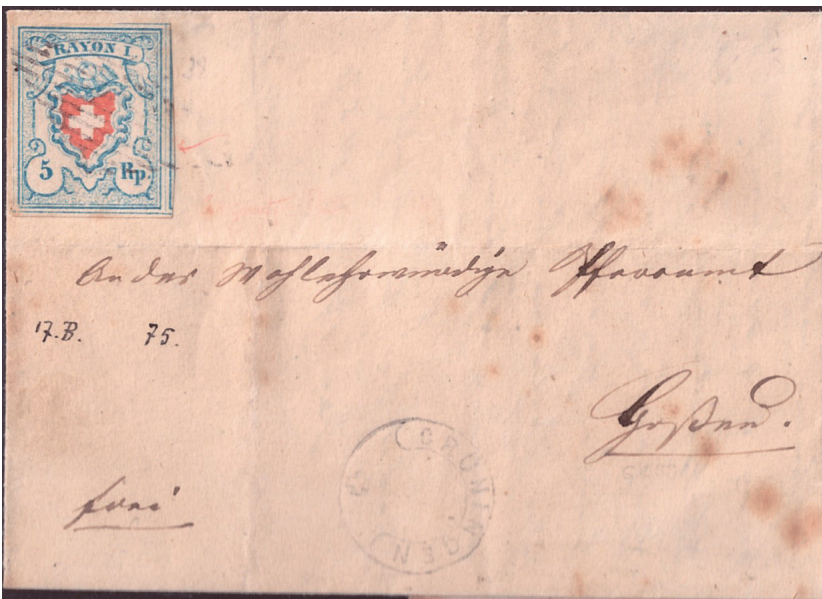 RAYON I.
5 Rp.
An das Wohlehrwürdige Pfarramt
17.B. 75.
Goßau.
frei
GRÜNINGEN